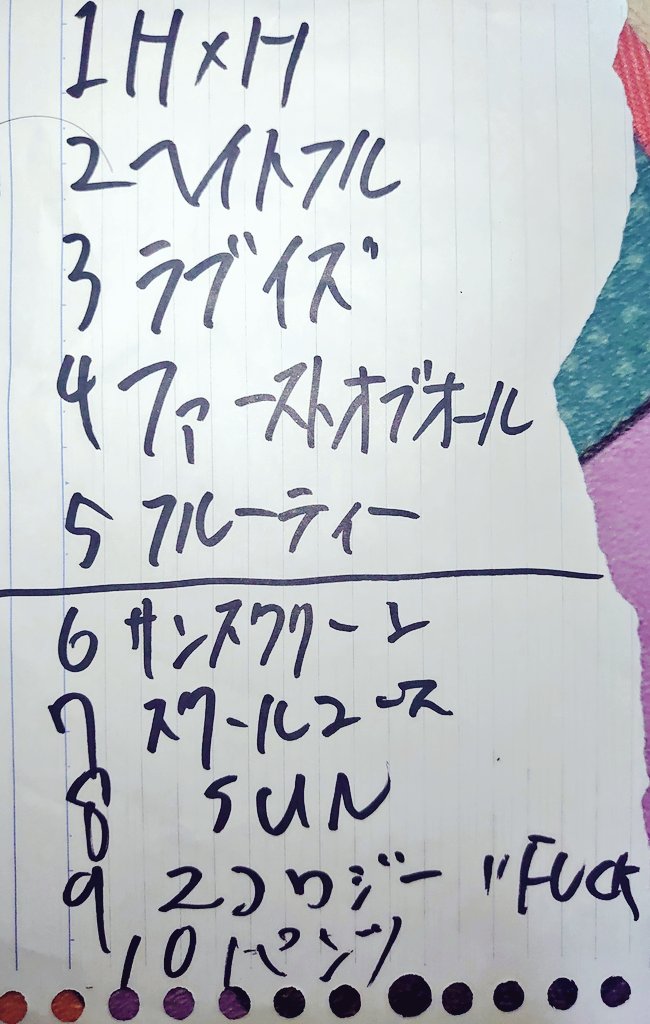 1 H×H
2 ヘイトフル
3 ラブイズ
4 ファーストオブオール
5 フルーティー
6 サンスクリーン
7 スクールユース
8 SUN
9 エコロジー "FUCK
10 パンツ